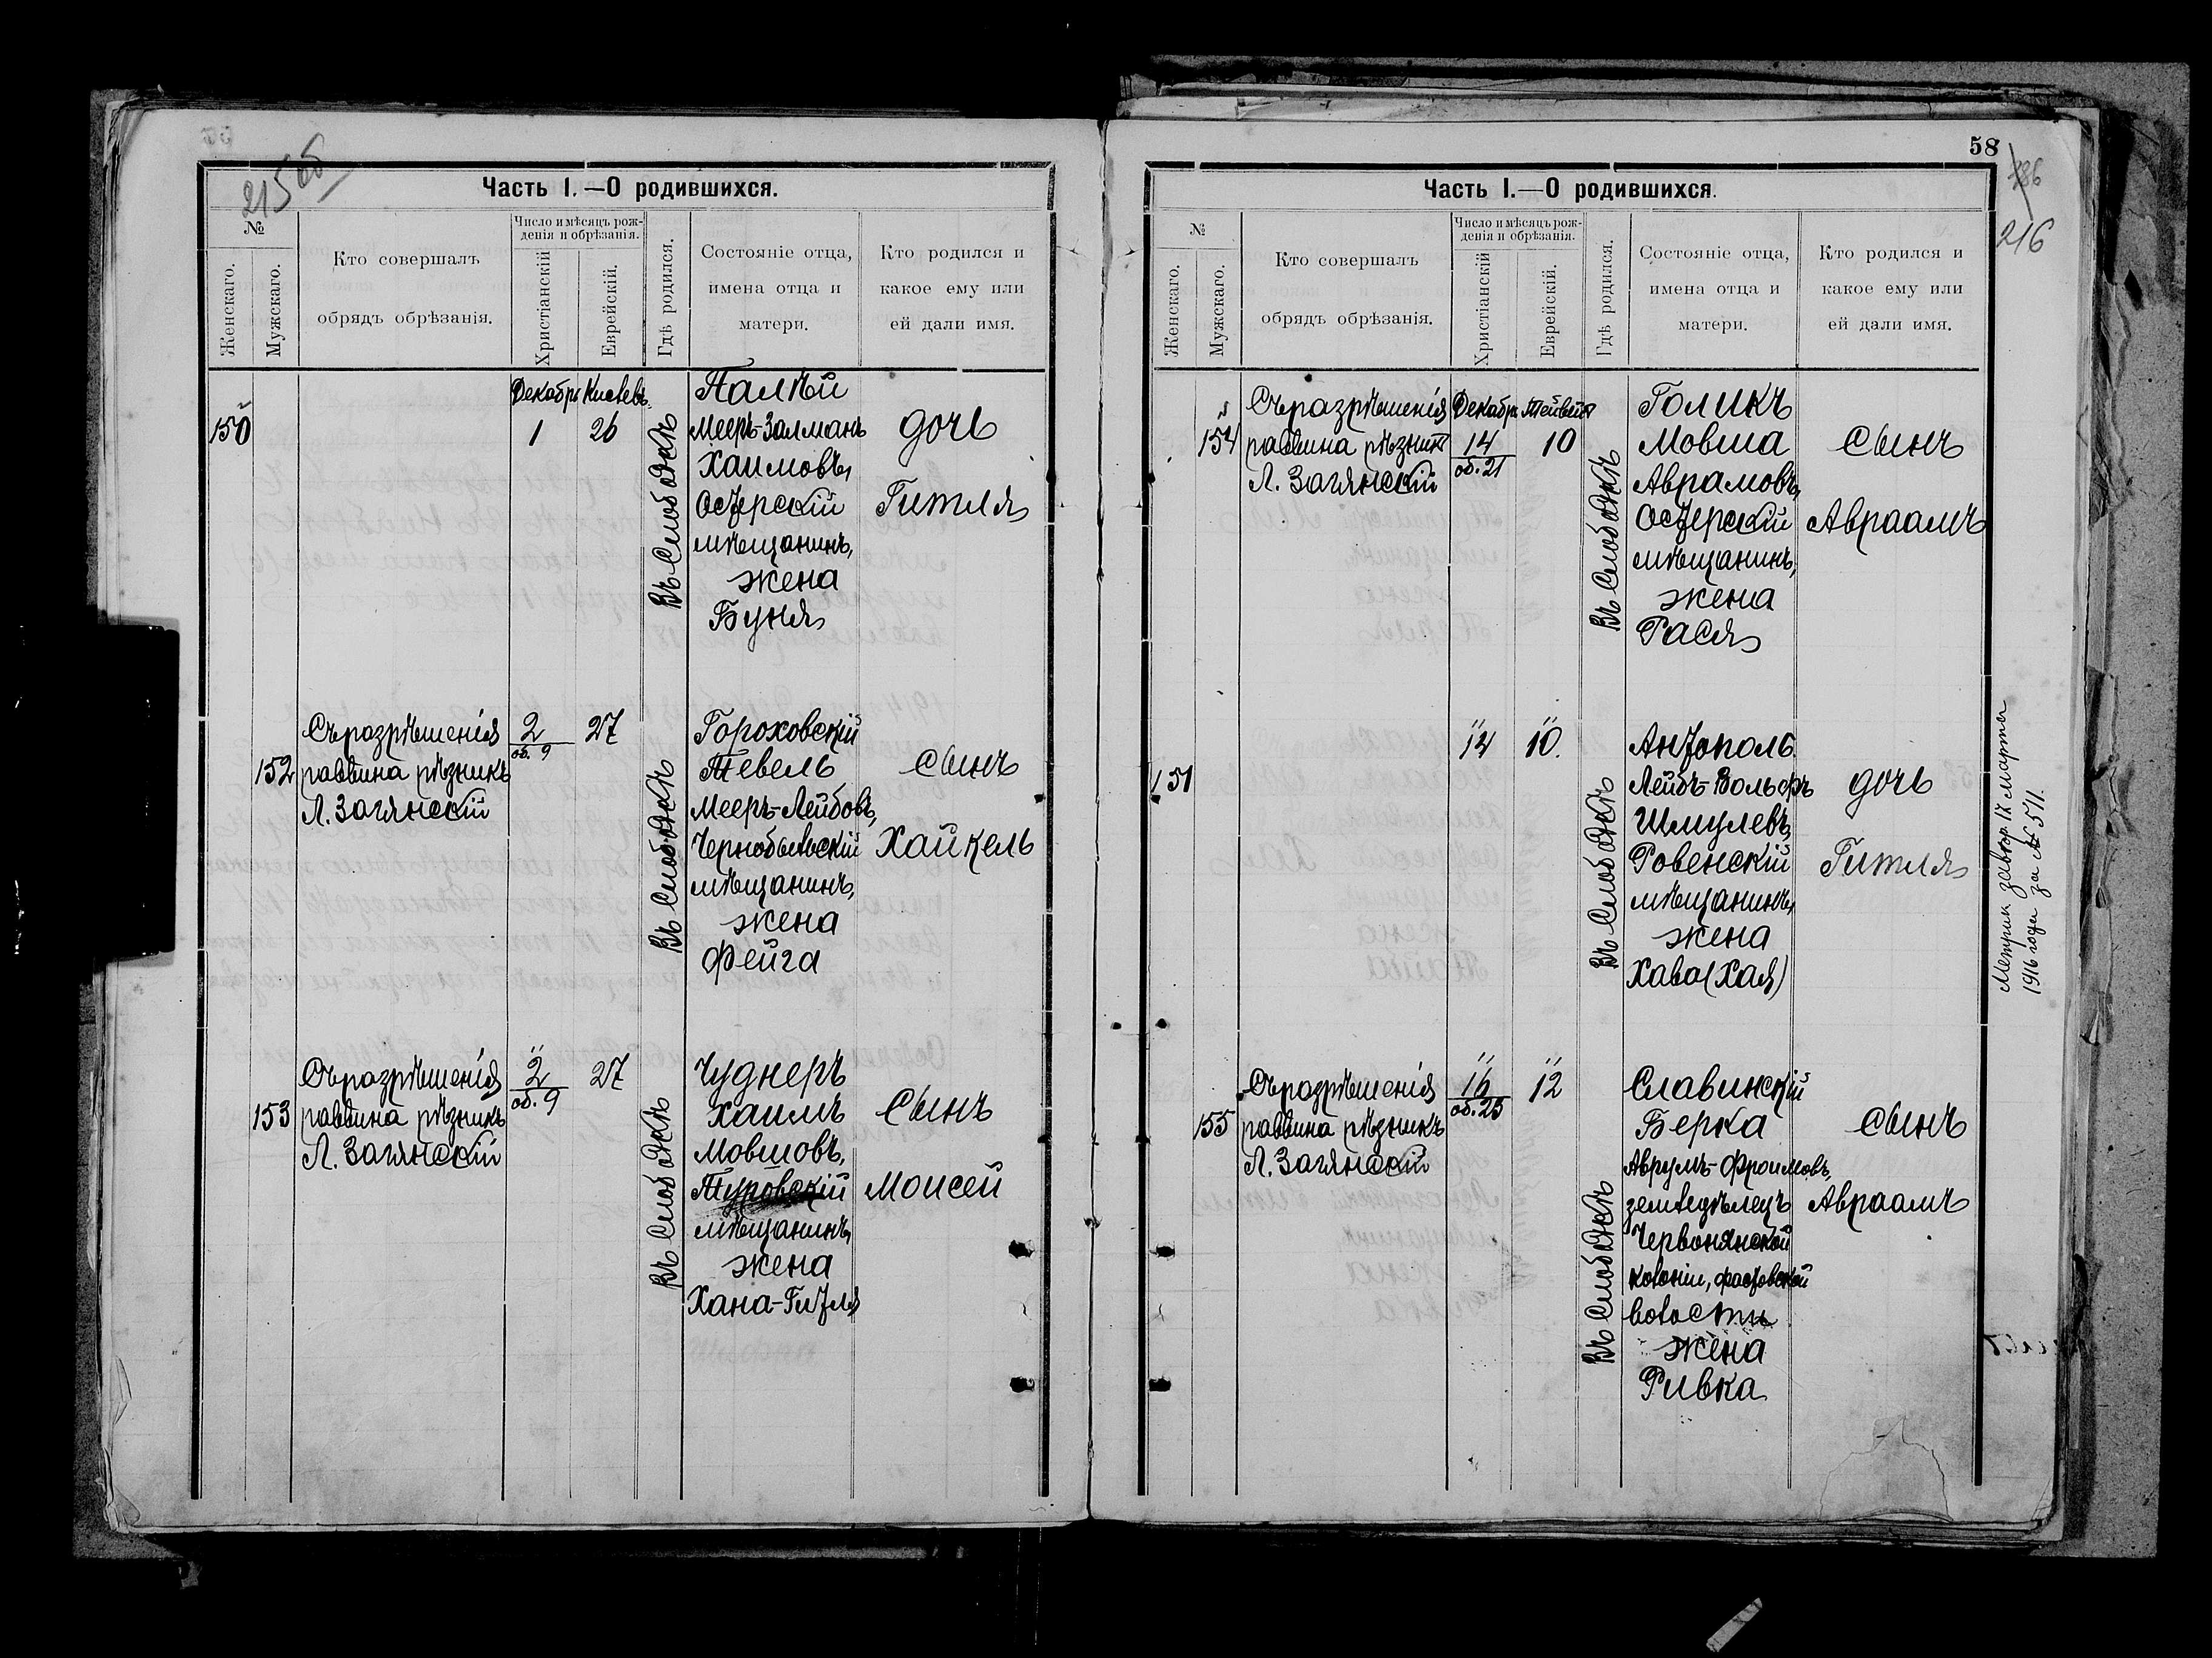 215 об
Часть I. — О родившихся.
№
Женскаго.
Мужскаго.
Кто совершалъ
обрядъ обрѣзанія.
Число и мѣсяцъ рож-
денія и обрѣзанія.
Христіанскій
Еврейскій.
Гдѣ родился.
Состояніе отца,
имена отца и
матери.
Кто родился и
какое ему или
ей дали имя.
150
Декабрь
1
Кислевъ
26
Въ Слободкѣ
Палѣй
Мееръ-Залманъ
Хаимовъ,
Остерскій
мѣщанинъ,
жена
Буня
дочь
Гитля
152
Съ разрѣшенія
раввина рѣзникъ
Л. Загянскій
2
об. 9
27
Въ Слободкѣ
Гороховскій
Тевель
Мееръ-Лейбовъ,
Чернобыльскій
мѣщанинъ,
жена
Фейга
сынъ
Хайкель
153
Съ разрѣшенія
раввина рѣзникъ
Л. Загянскій
2
об. 9
27
Въ Слободкѣ
Чуднеръ
Хаимъ
Мовшовъ,
Туровскій
мѣщанинъ,
жена
Хана-Гитля
Сынъ
Моисей
58
216
Часть I. — О родившихся.
№
Женскаго.
Мужскаго.
Кто совершалъ
обрядъ обрѣзанія.
Число и мѣсяцъ рож-
денія и обрѣзанія.
Христіанскій
Еврейскій.
Гдѣ родился.
Состояніе отца,
имена отца и
матери.
Кто родился и
какое ему или
ей дали имя.
154
Съ разрѣшенія
раввина рѣзник
Л. Загянскій
Декабрь
14
об. 21
Тейвейсъ
10
Въ Слободкѣ
Голикъ
Мовша
Аврамовъ,
Остерскій
мѣщанинъ,
жена
Рася
сынъ
Авраамъ
151
14
10.
Въ Слободкѣ
Антополь
Лейбъ-Вольфъ
Шмулевъ,
Ровенскій
мѣщанинъ,
жена
Хава (Хая)
дочь
Гитля
Метрик завтор 17 марта
1916 года за № 511.
155
Съ разрѣшенія
раввина рѣзникъ
Л. Загянскій
16
об. 23
12
Въ Слободкѣ
Славинскій
Берка
Аврумъ-Фроимовъ,
земледѣлецъ
Червонянской
колоніи, фастовской
волости
жена
Ривка
сынъ
Авраамъ